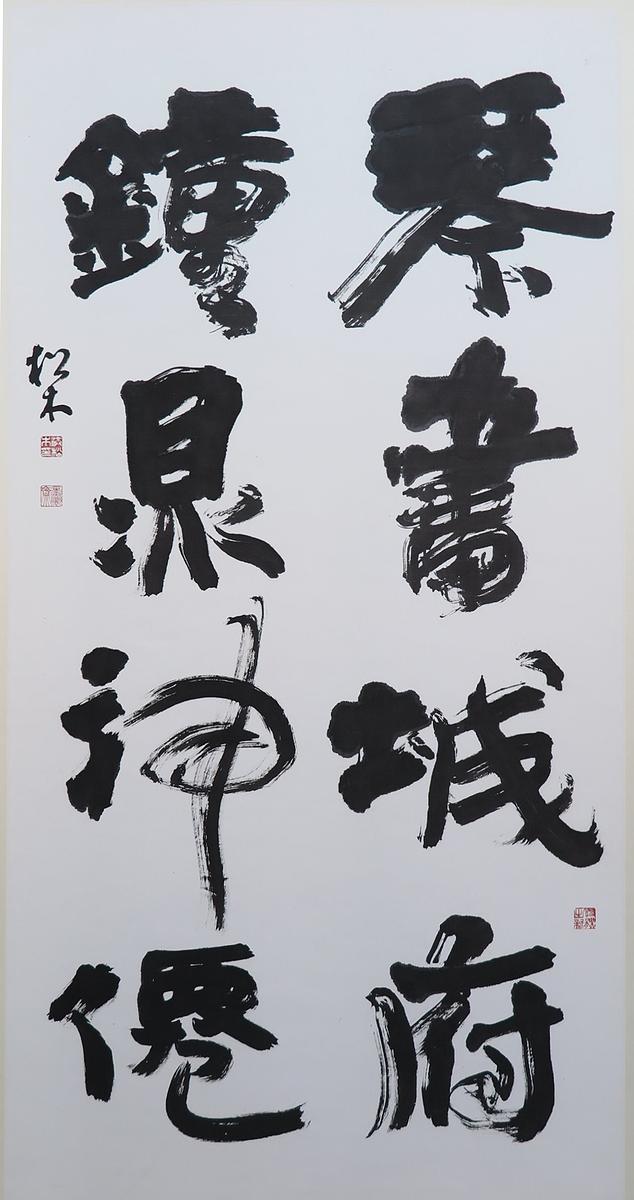 琴書城府
鐘鼎神僊
松木